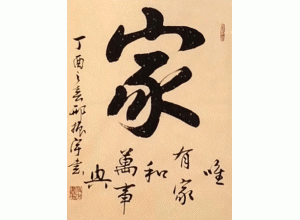 家
唯
有家
和
萬事
興
丁酉之春邢振書